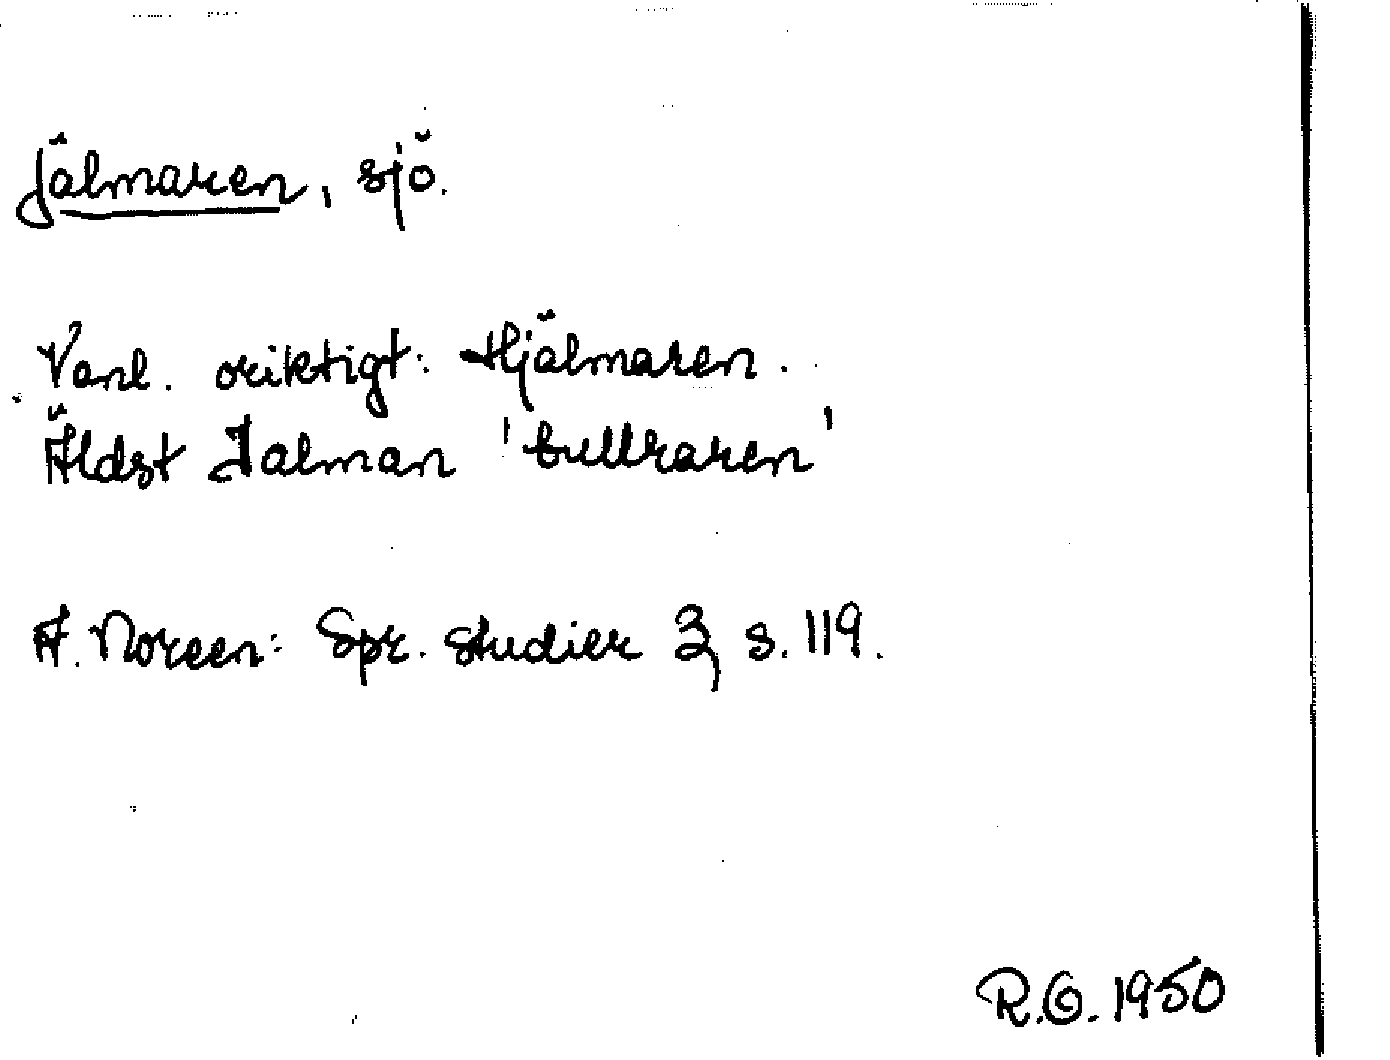 Jälmaren, sjö.
Vanl. oriktigt: Hjälmaren.
Äldst Jalman 'bullraren'
A. Noreen: Spr. studier 3, s. 119.
R.G. 1950